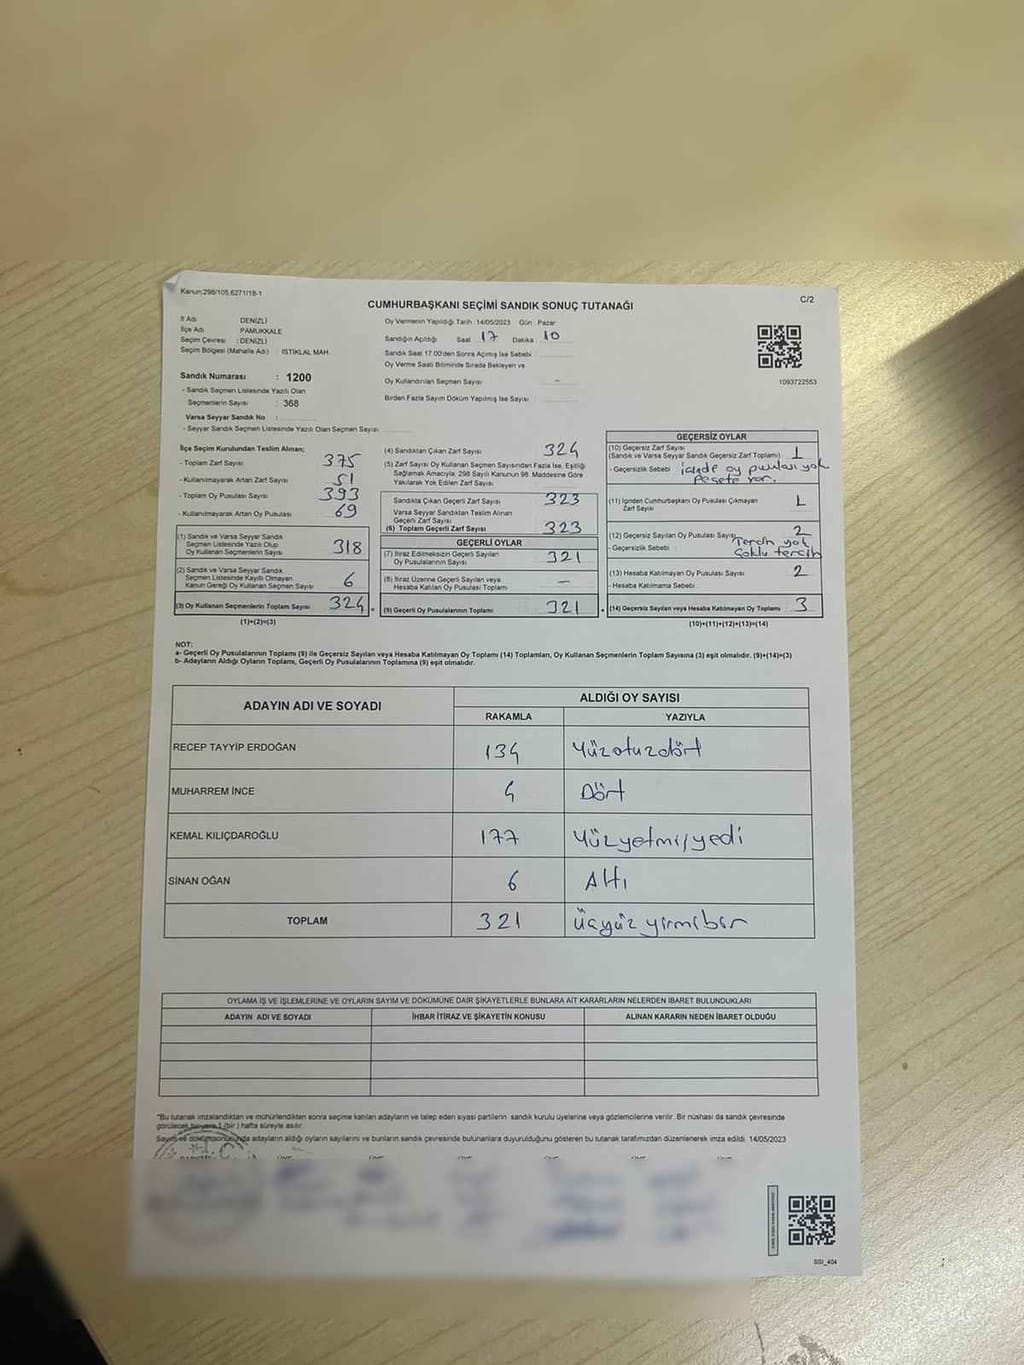 Kanun:298/105.6271/18-1
C/2
CUMHURBAŞKANI SEÇİMİ SANDIK SONUÇ TUTANAĞI
İl Adı DENİZLİ
İlçe Adı PAMUKKALE
Seçim Çevresi :DENİZLİ
Seçim Bölgesi (Mahalle Adı) İSTİKLAL MAH.
Sandık Numarası : 1200
- Sandık Seçmen Listesinde Yazılı Olan
Seçmenlerin Sayısı : 368
Varsa Seyyar Sandık No :
- Seyyar Sandık Seçmen Listesinde Yazılı Olan Seçmen Sayısı
Oy Vermenin Yapıldığı Tarih 14/05/2023 Gün Pazar
Sandığın Açıldığı Saat 17 Dakika 10
Sandık Saat 17.00'den Sonra Açılmış İse Sebebi
Oy Verme Saati Bitiminde Sırada Bekleyen ve
Oy Kullandırılan Seçmen Sayısı -
Birden Fazla Sayım Döküm Yapılmış İse Sayısı
1093722553
İlçe Seçim Kurulundan Teslim Alınan;
- Toplam Zarf Sayısı 375
- Kullanılmayarak Artan Zarf Sayısı 51
- Toplam Oy Pusulası Sayısı 393
- Kullanılmayarak Artan Oy Pusulası 69
(1) Sandık ve Varsa Seyyar Sandık
Seçmen Listesinde Yazılı Olup
Oy Kullanan Seçmenlerin Sayısı 318
(2) Sandık ve Varsa Seyyar Sandık
Seçmen Listesinde Kayıtlı Olmayan
Kanun Gereği Oy Kullanan Seçmen Sayısı 6
(3) Oy Kullanan Seçmenlerin Toplam Sayısı 324
(1)+(2)=(3)
(4) Sandıktan Çıkan Zarf Sayısı 324
(5) Zarf Sayısı Oy Kullanan Seçmen Sayısından Fazla İse, Eşitliği
Sağlamak Amacıyla, 298 Sayılı Kanunun 98. Maddesine Göre
Yakılarak Yok Edilen Zarf Sayısı
Sandıkta Çıkan Geçerli Zarf Sayısı 323
Varsa Seyyar Sandıktan Teslim Alınan
Geçerli Zarf Sayısı
(6) Toplam Geçerli Zarf Sayısı 323
GEÇERLİ OYLAR
(7) İtiraz Edilmeksizin Geçerli Sayılan
Oy Pusulasının Sayısı 321
(8) İtiraz Üzerine Geçerli Sayılan veya
Hesaba Katılan Oy Pusulası Toplamı -
(9) Geçerli Oy Pusulalarının Toplamı 321
GEÇERSİZ OYLAR
(10) Geçersiz Zarf Sayısı
(Sandık ve Varsa Seyyar Sandık Geçersiz Zarf Toplamı) 1
- Geçersizlik Sebebi içinde oy pusulası yok
peçete var.
(11) İçinden Cumhurbaşkanı Oy Pusulası Çıkmayan
Zarf Sayısı 1
(12) Geçersiz Sayılan Oy Pusulası Sayısı 2
- Geçersizlik Sebebi Tercih yok
Çoklu tercih
(13) Hesaba Katılmayan Oy Pusulası Sayısı 2
- Hesaba Katılmama Sebebi
(14) Geçersiz Sayılan veya Hesaba Katılmayan Oy Toplamı 3
(10)+(11)+(12)+(13)=(14)
NOT:
a- Geçerli Oy Pusulalarının Toplamı (9) ile Geçersiz Sayılan veya Hesaba Katılmayan Oy Toplamı (14) Toplamları, Oy Kullanan Seçmenlerin Toplam Sayısına (3) eşit olmalıdır. (9)+(14)=(3)
b- Adayların Aldığı Oyların Toplamı, Geçerli Oy Pusulalarının Toplamına (9) eşit olmalıdır.
ADAYIN ADI VE SOYADI
ALDIĞI OY SAYISI
RAKAMLA YAZIYLA
RECEP TAYYİP ERDOĞAN 134 Yüzotuzdört
MUHARREM İNCE 4 Dört
KEMAL KILIÇDAROĞLU 177 Yüzyetmişyedi
SİNAN OĞAN 6 Altı
TOPLAM 321 Üçyüz yirmibir
OYLAMA İŞ VE İŞLEMLERİNE VE OYLARIN SAYIM VE DÖKÜMÜNE DAİR ŞİKAYETLERLE BUNLARA AİT KARARLARIN NELERDEN İBARET BULUNDUKLARI
ADAYIN ADI VE SOYADI İHBAR İTİRAZ VE ŞİKAYETİN KONUSU ALINAN KARARIN NEDEN İBARET OLDUĞU
*Bu tutanak imzalandıktan ve mühürlendikten sonra seçime katılan adayların ve talep eden siyasi partilerin sandık kurulu üyelerine veya gözlemcilerine verilir. Bir nüshası da sandık çevresinde
görülecek bir yere 1 (bir) hafta süreyle asılır.
Sayım ve döküm sonucunda adayların aldığı oyların sayılarını ve bunların sandık çevresinde bulunanlara duyurulduğunu gösteren bu tutanak tarafımızdan düzenlenerek imza edildi. 14/05/2023
SSI_404